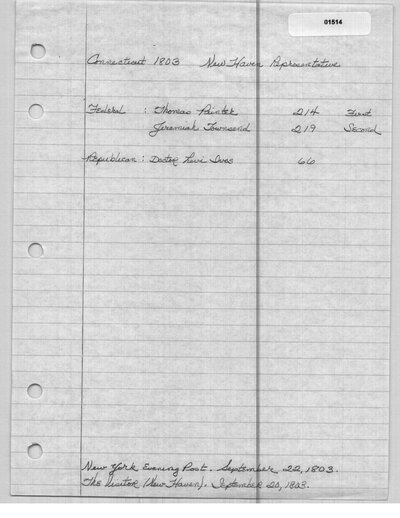 01514
Connecticut 1803 New Haven Representative
Federal : Thomas Painter 214 First
Jeremiah Townsend 219 Second
Republican : Doctor Levi Ives 66
New York Evening Post. September 22, 1803.
The Visitor (New Haven). September 20, 1803.